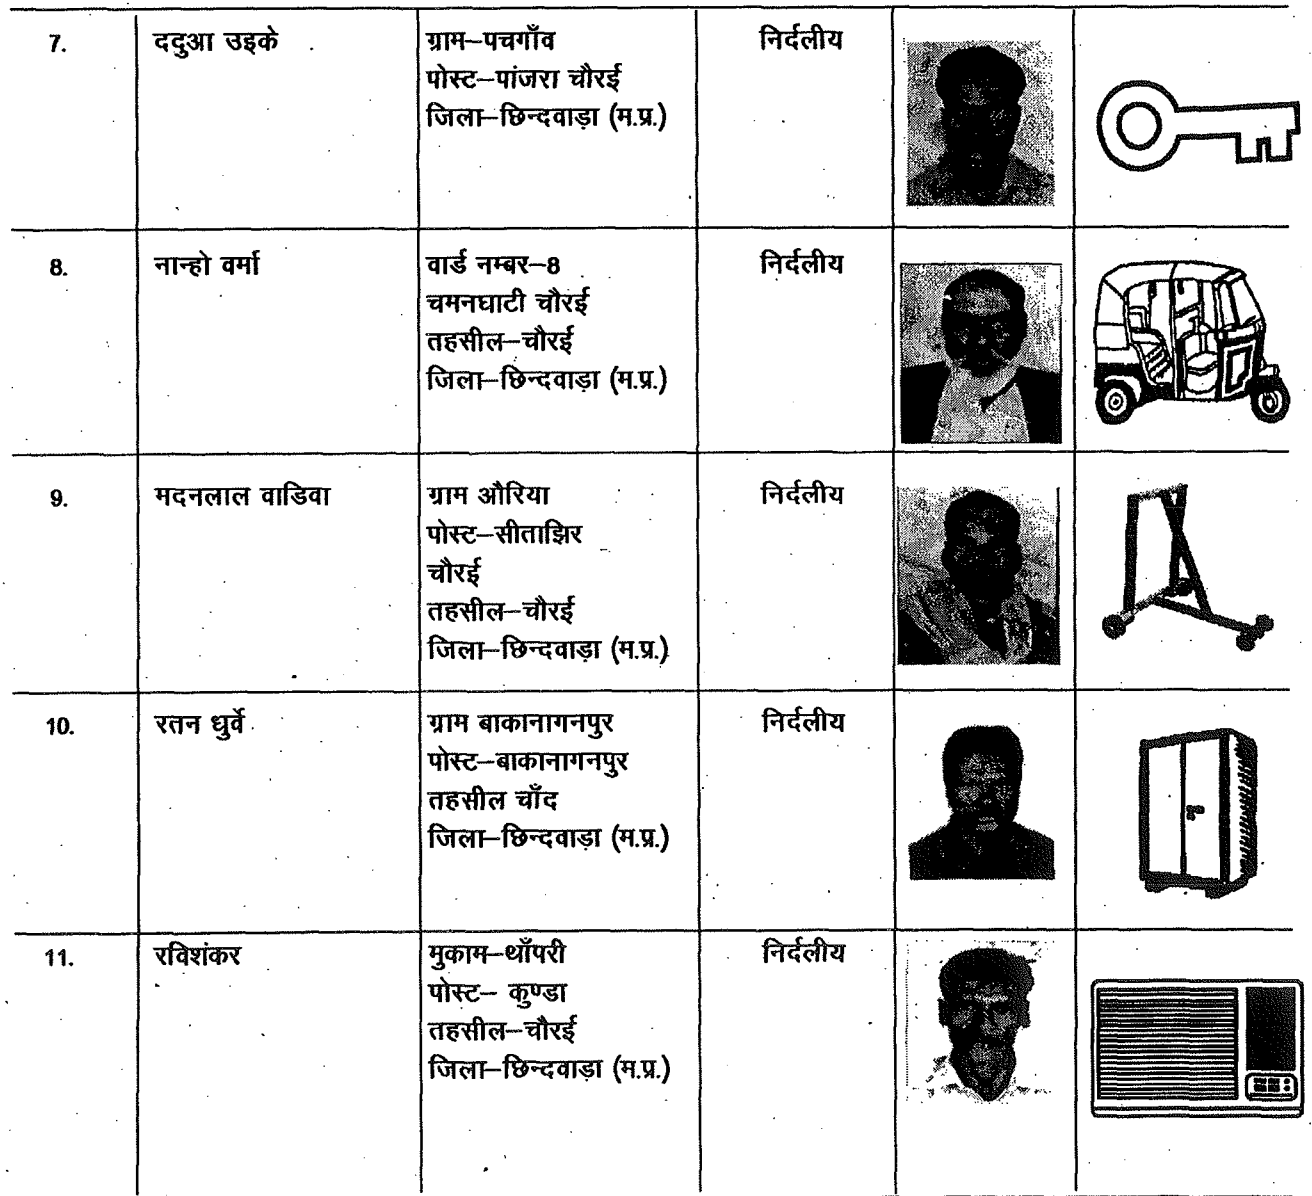 7.
ददुआ उइके
ग्राम–पचगाँव
पोस्ट–पांजरा चौरई
जिला–छिन्दवाड़ा (म.प्र.)
निर्दलीय
8.
नान्हो वर्मा
वार्ड नम्बर–8
चमनघाटी चौरई
तहसील–चौरई
जिला–छिन्दवाड़ा (म.प्र.)
निर्दलीय
9.
मदनलाल वाडिवा
ग्राम औरिया
पोस्ट–सीताझिर
चौरई
तहसील–चौरई
जिला–छिन्दवाड़ा (म.प्र.)
निर्दलीय
10.
रतन धुर्वे
ग्राम बाकानागनपुर
पोस्ट–बाकानागनपुर
तहसील चाँद
जिला–छिन्दवाड़ा (म.प्र.)
निर्दलीय
11.
रविशंकर
मुकाम–थाँपरी
पोस्ट– कुण्डा
तहसील–चौरई
जिला–छिन्दवाड़ा (म.प्र.)
निर्दलीय